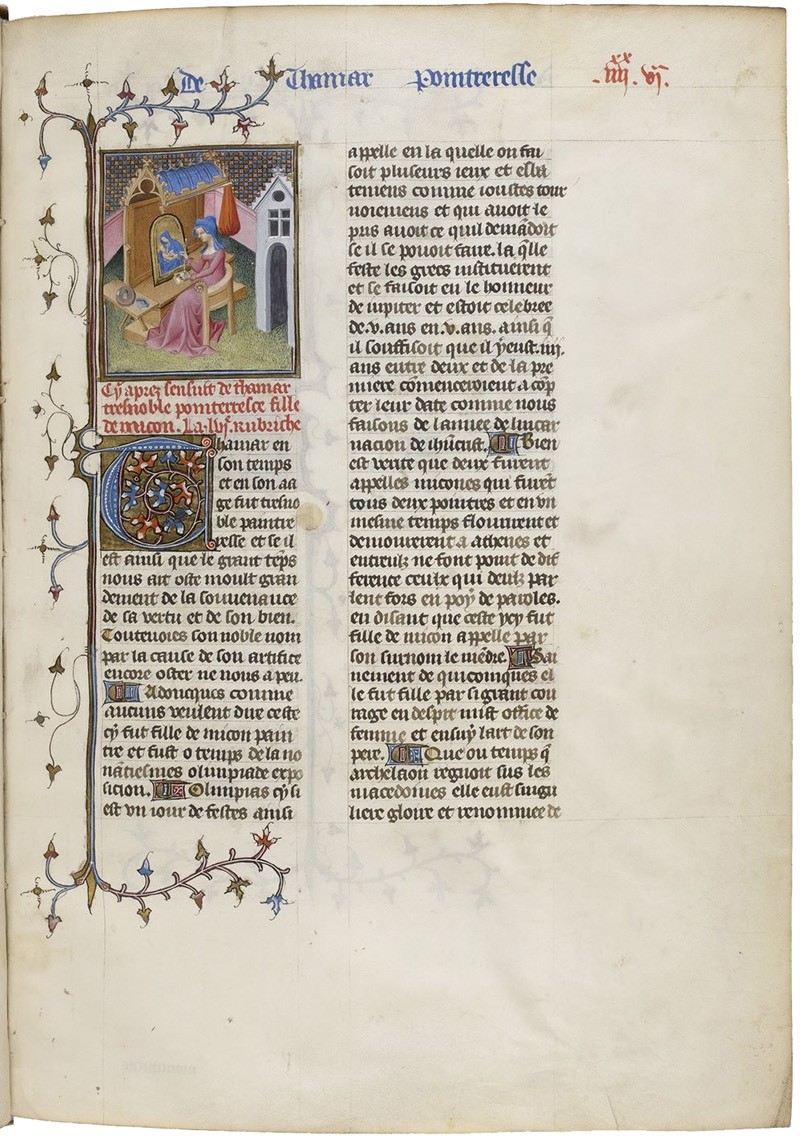 De Thamar pomtreresse .iiii.xx vi.
Cy aprez sensuit de thamar
tresnoble pointerresce fille
de micon. La .lvi. rubriche
Thamar en
son temps
et en son aa
ge fut tresno
ble paintre
resse et se il
est ainsi que le grant tẽps
nous ait oste moult gran
dement de la souvenance
de sa vertu et de son bien.
Toutevoies son noble nom
par la cause de son artifice
encore oster ne nous a peu.
Adoncques comme
aucuns veulent dire ceste
cy fut fille de micon pain
tre et fust o temps de la no
nãtiesmes olimpiade expo
sicion. Olimpias cy si
est vn iour de festes ainsi
appelle en la quelle on fai
soit pluseurs ieux et esba
temens comme ioustes tour
noiemens et qui auoit le
pris auoit ce quil demãdoit
se il se pouoit faire. la q̃lle
feste les grecs instituerent
et se faisoit en le honneur
de iupiter et estoit celebree
de .v. ans en .v. ans. ainsi q̃
il souffisoit que il y eust .iiii.
ans entre deux et de la pre
miere cõmencerent a cõp
ter leur date comme nous
faisons de lannee de lincar
nacion de ihũcrist. Bien
est verite que deux furent
appelles micones qui furẽt
tous deux pointres et en vn
mesme temps flourirent et
demourerent a athenes et
entreulz ne font point de dif
ference ceulx qui deulz par
lent fors en poy de paroles.
en disant que ceste yey fut
fille de micon appelle par
son surnom le mẽdre. Sai
nement de quiconques el
le fut fille par si grant cou
rage en despit mist office de
femme et ensuy lart de son
pere. Que ou temps q̃
archelaon regnoit sus les
macedonies elle eust singu
liere gloire et renommee de